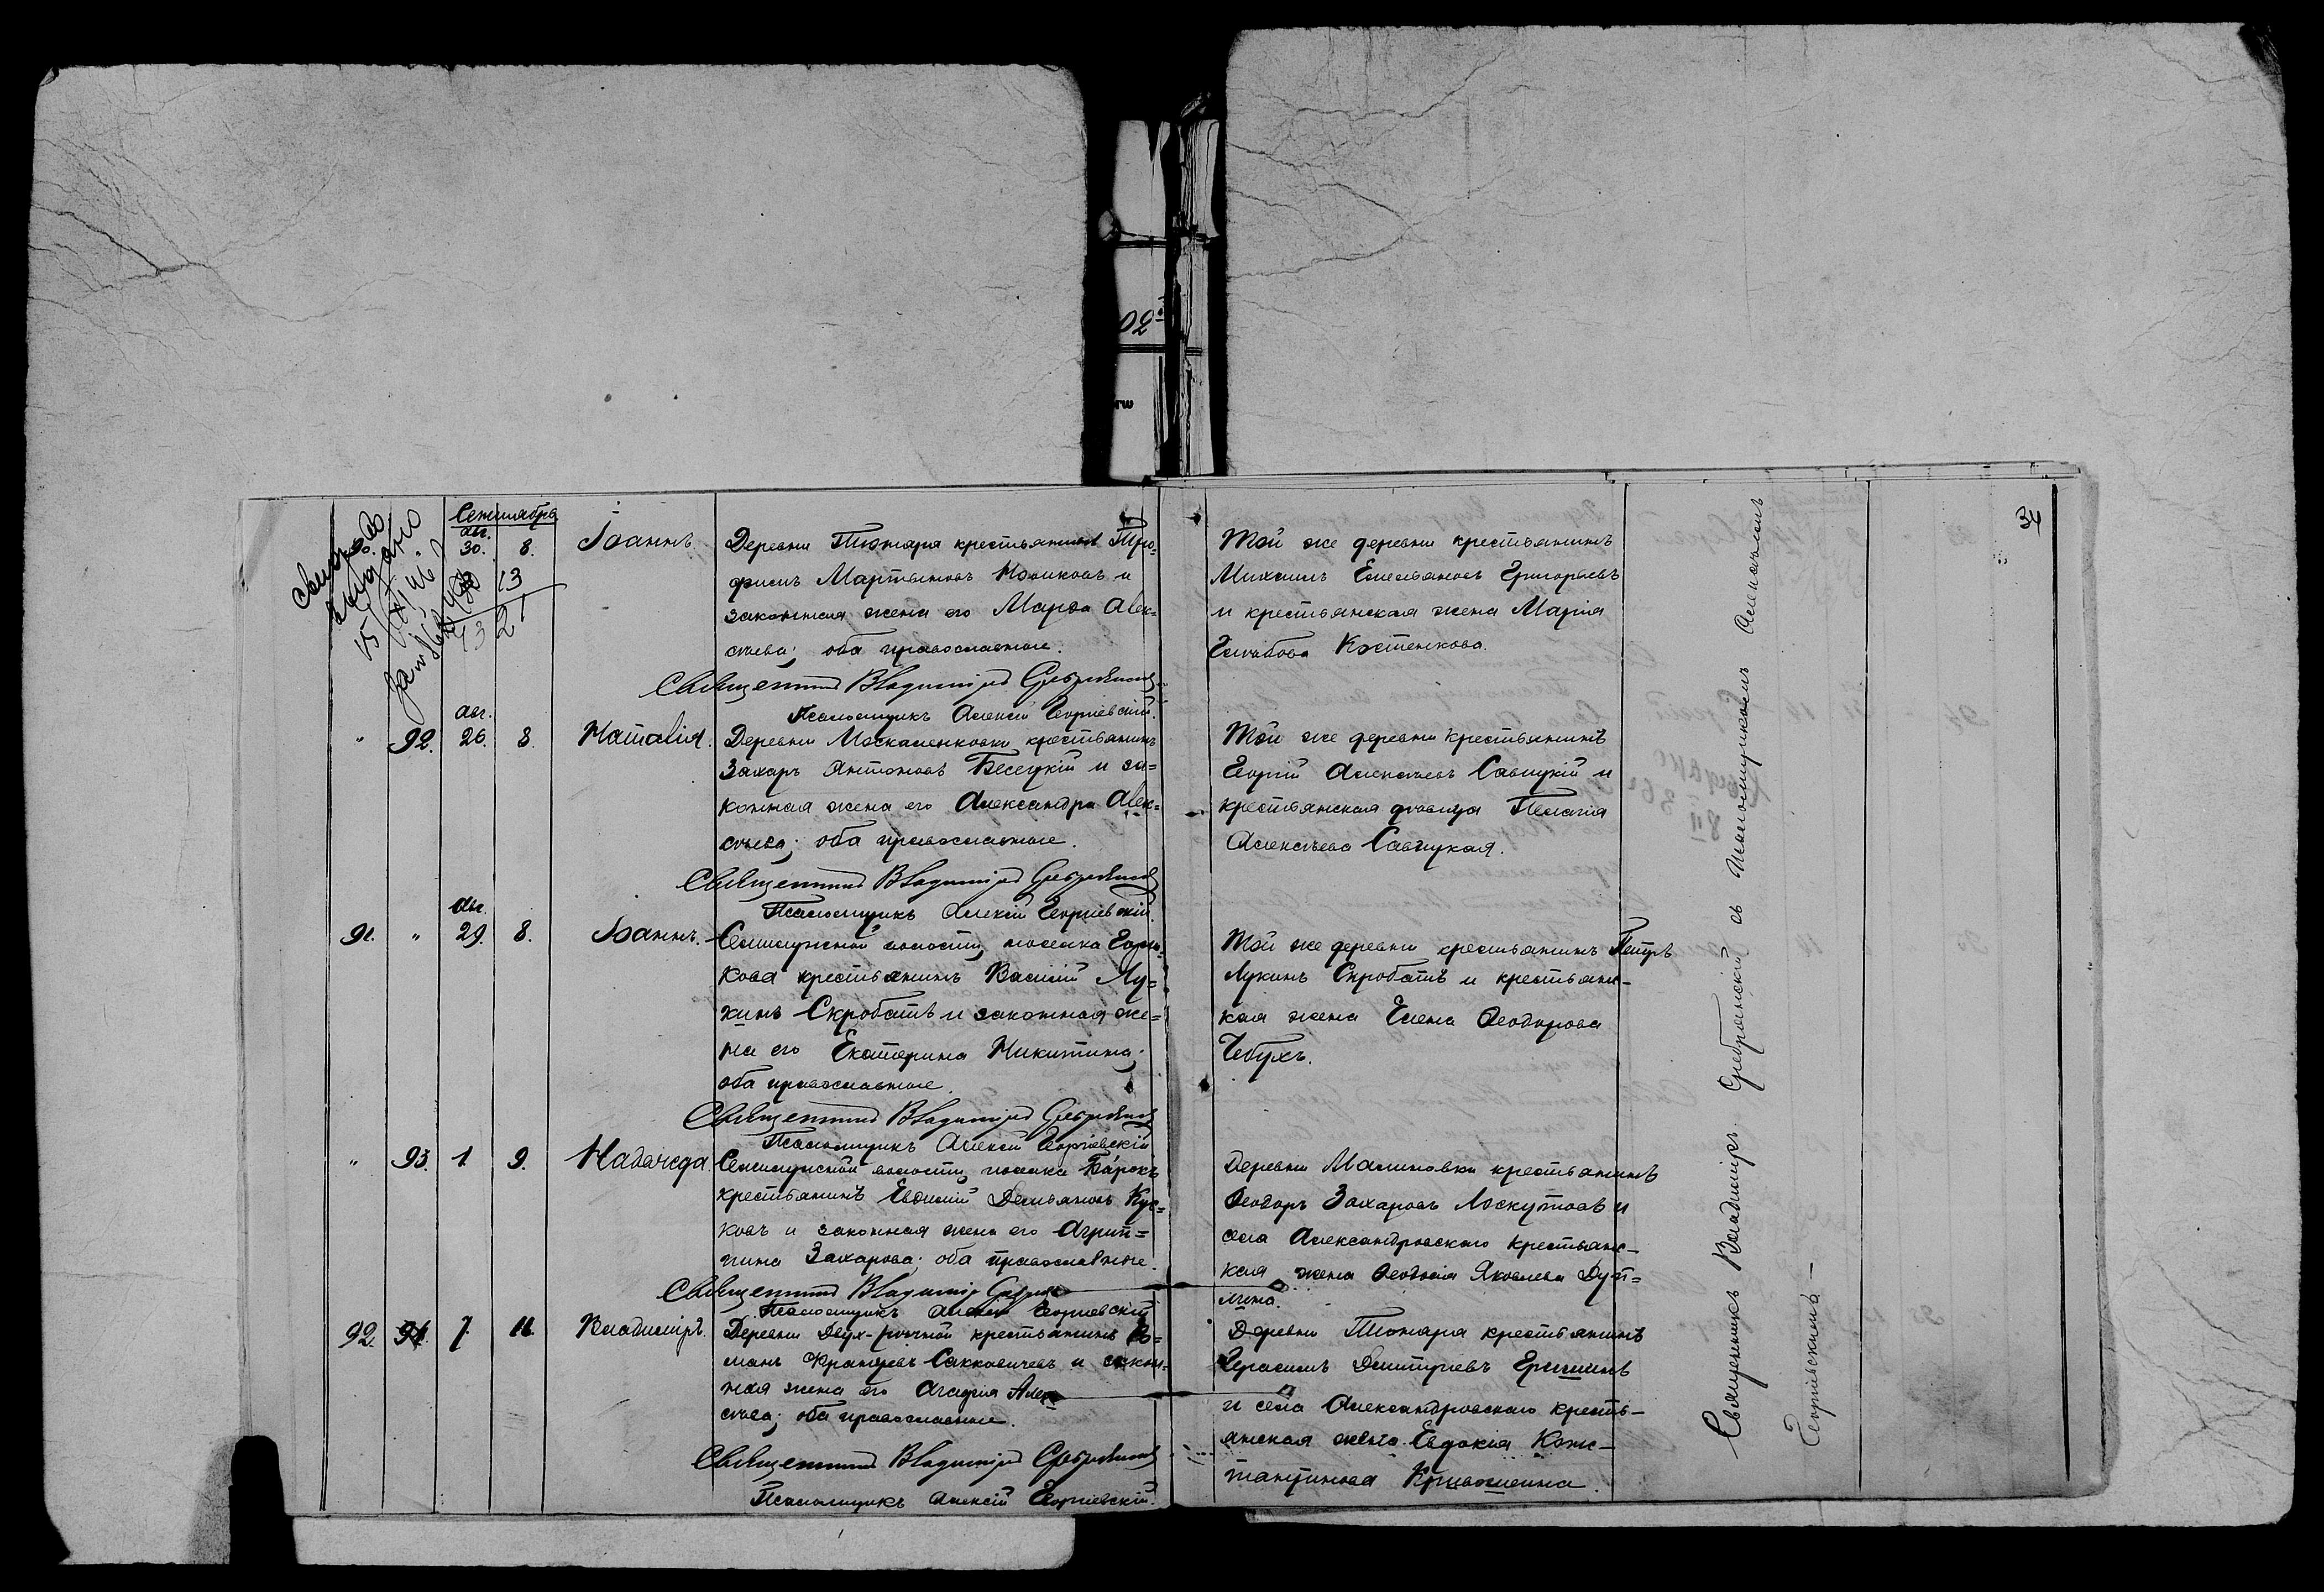 02
34
Сентября
свид-во
выдано
авг.
30. 8.
13
21
Іоаннъ.
Деревни Тюхтяря крестьянинъ Тро-
фимъ Мартыновъ Новиковъ и
законная жена его Марфа Алек=
сѣева; оба православные.
Священникъ Владиміръ Сребрянскій
Псаломщикъ Алексій Георгіевскій.
Той же деревни крестьянинъ
Михаилъ Емельяновъ Григорьевъ
и крестьянская жена Марія
Глѣбова Костенкова.
" 92.
авг.
26. 8.
Наталія.
Деревни Москаленковки крестьянинъ
Захаръ Антоновъ Бесецкій и за=
конная жена его Александра Алек=
сѣева; оба православные.
Священникъ Владиміръ Сребрянскій
Псаломщикъ Алексій Георгіевскій.
Той же деревни крестьянинъ
Георгій Алексѣевъ Савицкій и
крестьянская дѣвица Пелагія
Алексѣева Савицкая.
91. "
авг.
29. 8.
Іоаннъ.
Семилужной волости, поселка
кова крестьянинъ Василій Лу=
кинъ Скробатъ и законная же=
на его Екатерина Никитина;
оба православные.
Священникъ Владиміръ Сребрянскій
Псаломщикъ Алексій Георгіевскій
Той же деревни крестьянинъ Петръ
Лукинъ Скробатъ и крестьянс-
кая жена Елена Ѳеодорова
Чебухъ.
" 93. 1. 9.
Надежда.
Семилужской волости, поселка
крестьянинъ Евѳимій Демьяновъ Кус=
ковъ и законная жена его Агрип=
пина Захарова; оба православные.
Священникъ Владиміръ Сребрянскій
Псаломщикъ Алексій Георгіевскій
Деревни Малиновки крестьянинъ
Ѳеодоръ Захаровъ Лоскутовъ и
села Александровскаго крестьянс-
кая жена Ѳеодосія Яковлева
92. 94. 7. 16.
Владиміръ.
Деревни Двух-рѣчной крестьянинъ Ро=
манъ Сакковичевъ и закон=
ная жена его Агафія Алек
сѣева; оба православные.
Священникъ Владиміръ Сребрянскій
Псаломщикъ Алексій Георгіевскій.
Деревни Тюхтяря крестьянинъ
Герасимъ Дмитріевъ Ершинъ
и села Александровскаго кресть-
янская жена Евдокія Конс-
тантинова Кривошеина.
Священникъ Владиміръ Сребрянскій съ псаломщикомъ Алексіемъ
Георгіевскимъ —